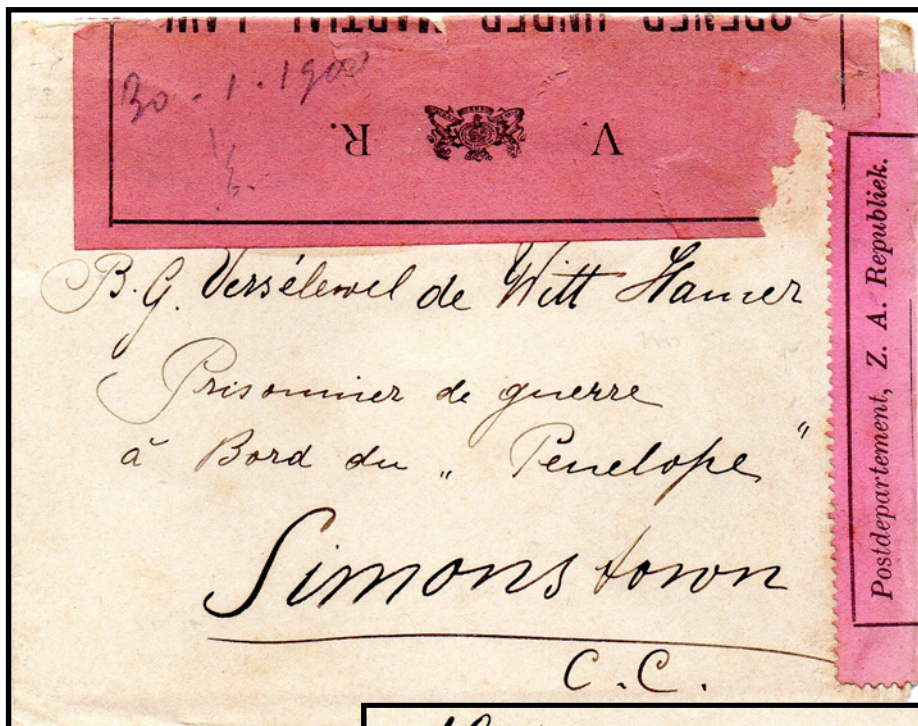 OPENED UNDER MARTIAL LAW
V. R.
30 - 1 - 1900
B. G. Versélewel de Witt Hamer
Prisonnier de guerre
à Bord du „ Penelope "
Simonstown
C. C.
Postdepartement, Z. A. Republiek.